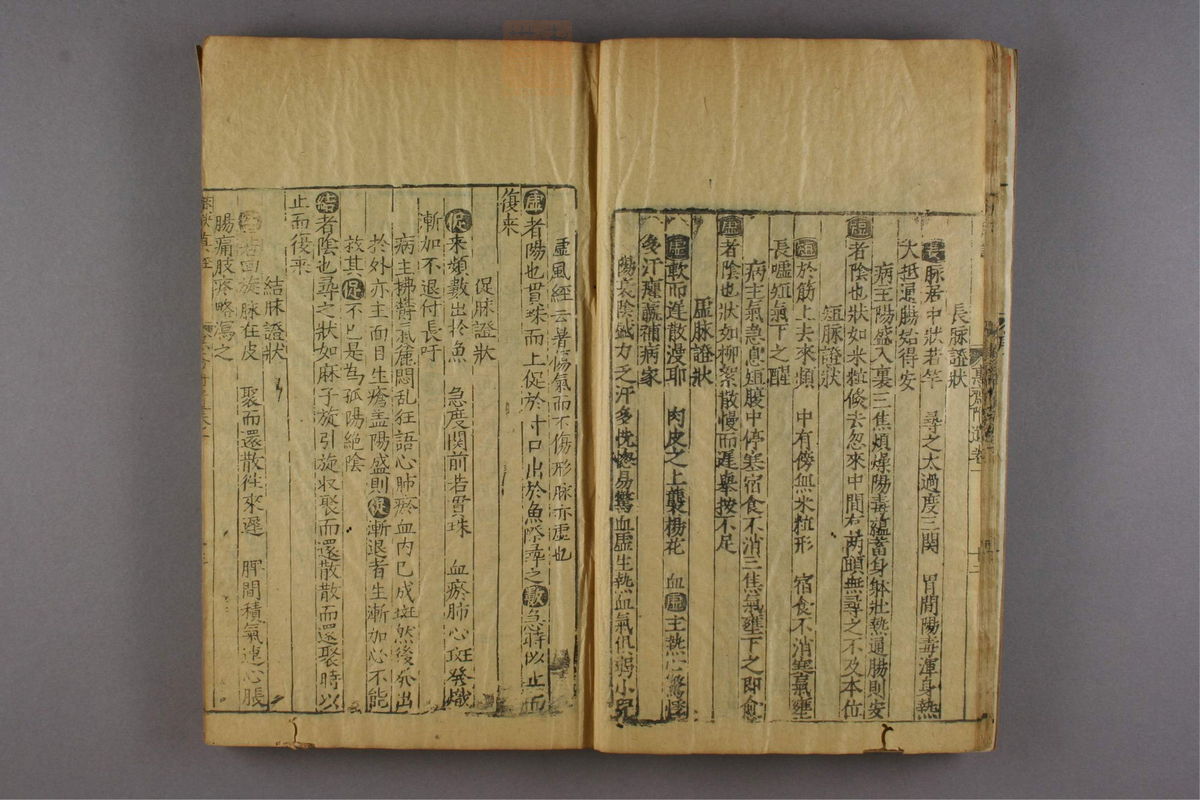 長脉證狀
長脉居中狀若竿　尋之太過度三関　胃間陽毒渾身熱
大抵通腸始得安
病主陽盛入裏三焦煩燥陽毒蘊蓄身躰壯熱通腸則安
者陰也狀如米粒倐去忽來中間有兩頭無尋之不及本位
短脉證狀
短於筋上去來頻　中有傍無米粒形　宿食不消寒氣壅
長噓短氣下之醒
病主氣急息短腹中停寒宿食不消三焦氣壅下之即愈
虛者陰也狀如柳絮散慢而遲舉按不足
虛脉證狀
虛軟而遲散漫耶　肉皮之上襲楊花　血虛主熱心驚悸
多汗薄羸補病家
陽衰陰盛力乏汗多恍惚易驚血虛生熱血氣俱弱小兒
虛風經云暑傷氣而不傷形脉亦虛也
者陽也貫珠而上促於寸口出於魚際尋之數急時以止而
復來
促脉證狀
促來頻數出於魚　急度関前若貫珠　血瘀肺心斑發熾
漸加不退付長吁
病主拂鬱氣麄悶乱狂語心肺瘀血内已成斑然後發出
於外亦主面目生瘡盖陽盛則促漸退者生漸加心不能
救其促不已是為孤陽絶陰
結者陰也尋之狀如麻子旋引旋收聚而還散散而還聚時以
止而後來
結脉證狀
回旋脉在皮　聚而還散徃來遲　脾間積氣連心脹
腸痛肢疼略瀉之